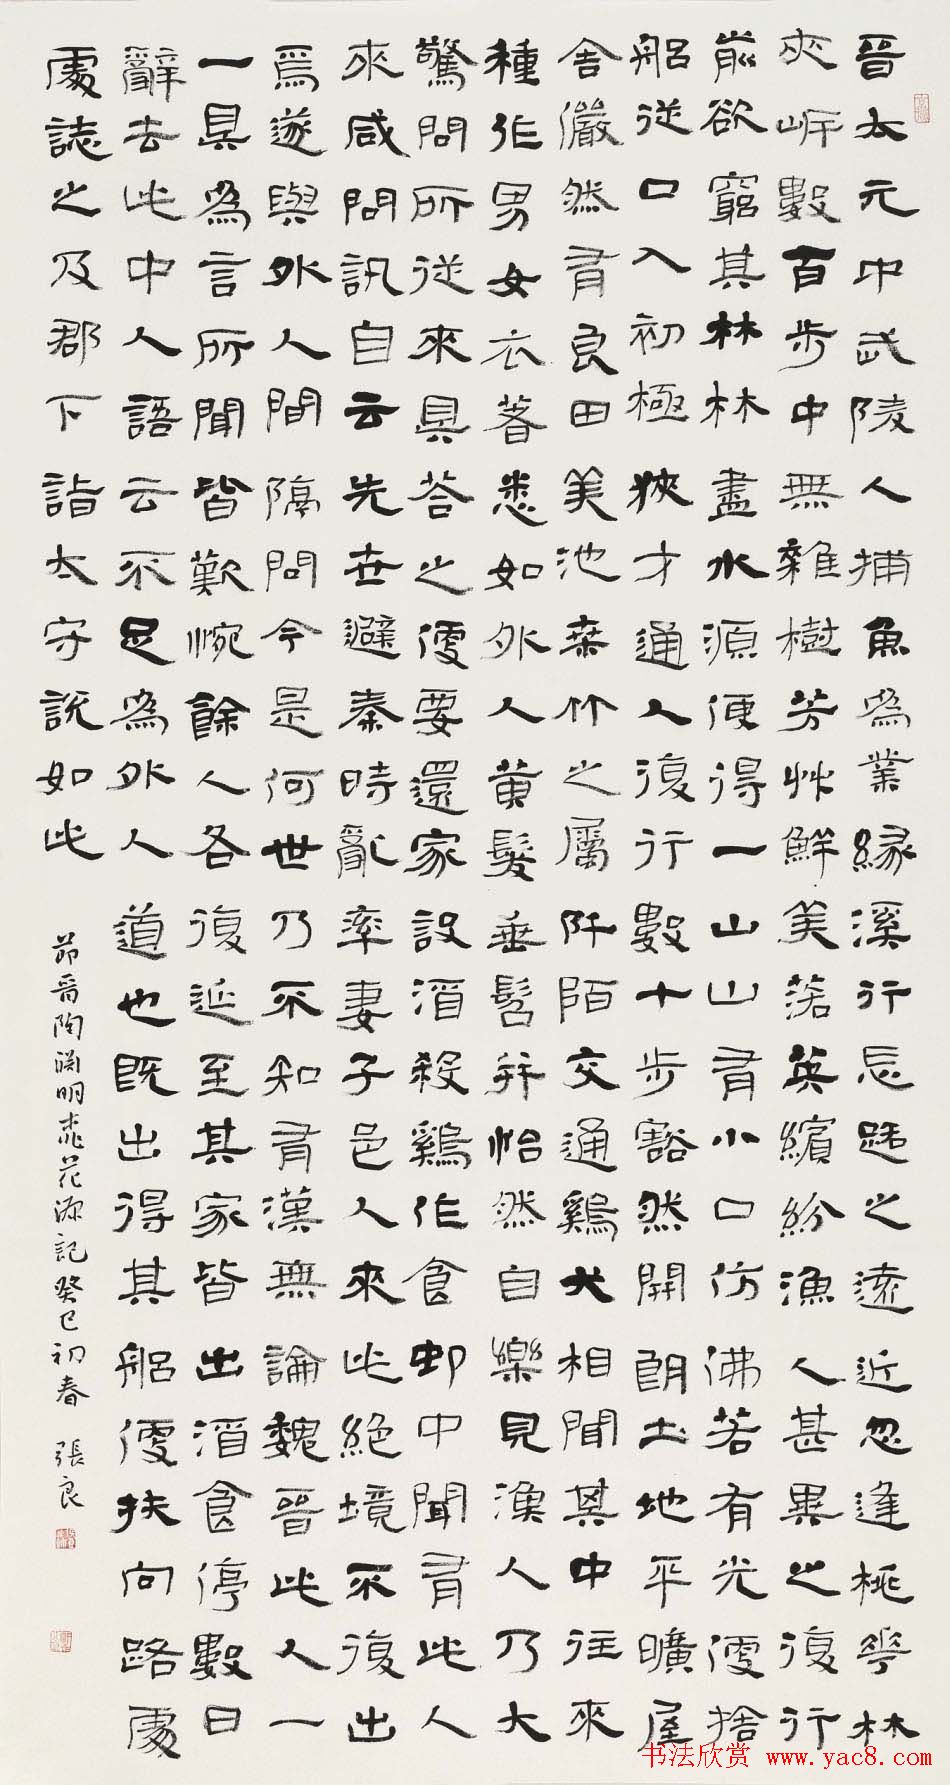 晉太元中武陵人捕魚為業緣溪行忘路之遠近忽逢桃華林
夾岸數百步中無雜樹芳艸鮮美落英繽紛漁人甚異之復行
前欲窮其林林盡水源便得一山山有小口仿佛若有光便捨
船從口入初極狹才通人復行數十步豁然開朗土地平曠屋
舍儼然有良田美池桑竹之屬阡陌交通雞犬相聞其中往來
種作男女衣著悉如外人黃髮垂髫并怡然自樂見漁人乃大
驚問所從來具答之便要還家設酒殺雞作食邨中聞有此人
來咸問訊自云先世避秦時亂率妻子邑人來此絕境不復出
焉遂與外人間隔問今是何世乃不知有漢無論魏晉此人一
一具為言所聞皆歎惋餘人各復延至其家皆出酒食停數日
辭去此中人語云不足為外人道也既出得其船便扶向路處
處誌之及郡下詣太守說如此
節晉陶淵明桃花源記癸巳初春 張良
书法欣赏 www.yac8.com